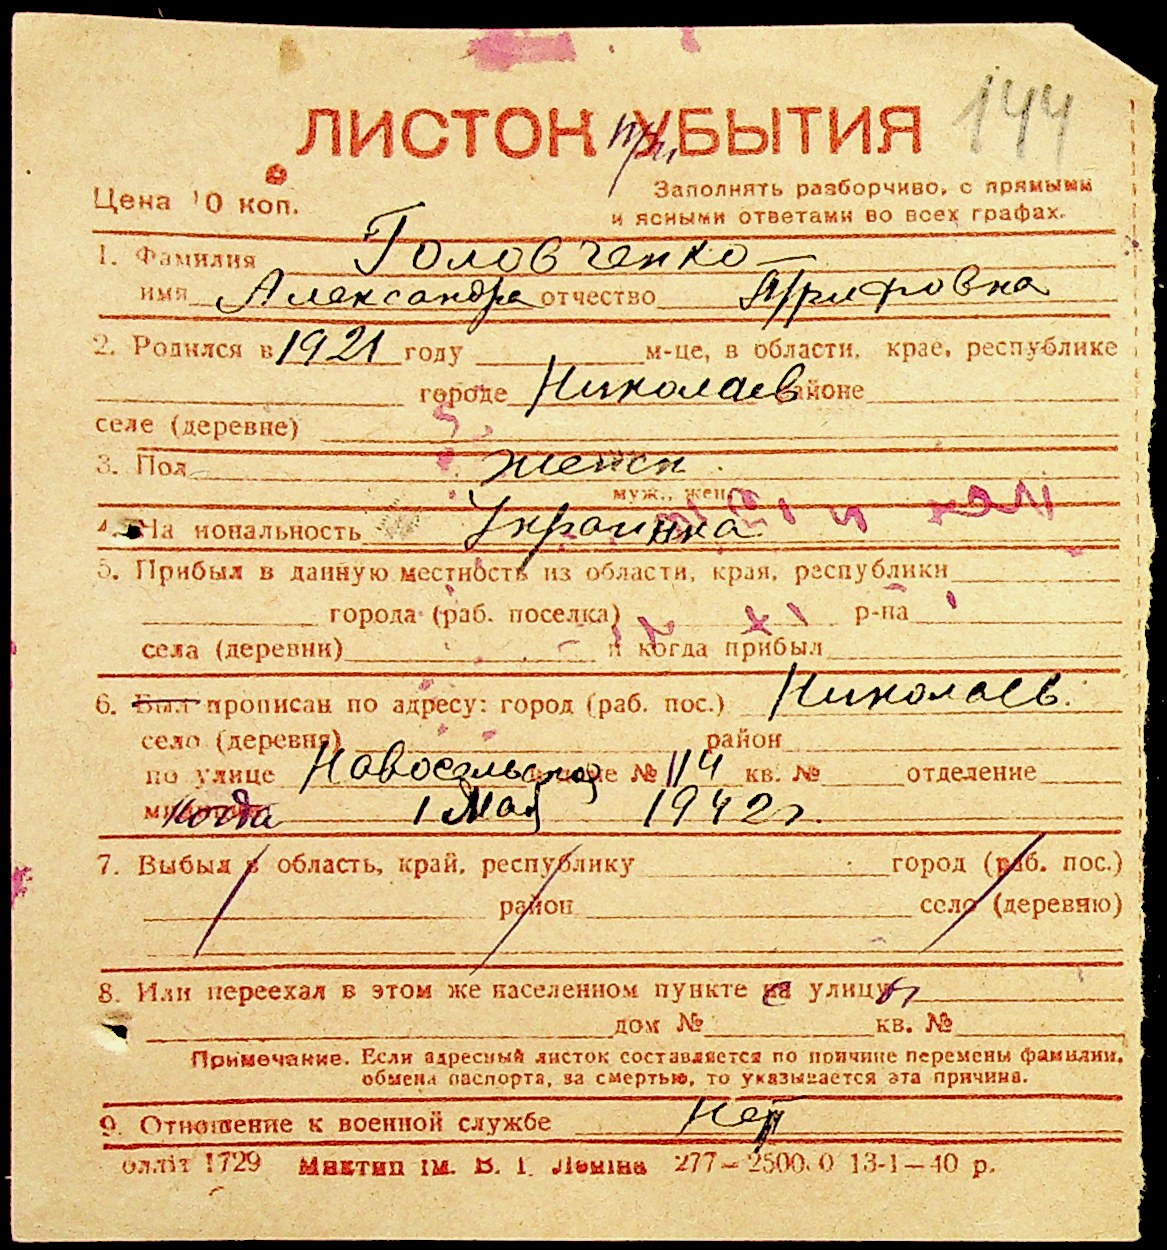 144
ЛИСТОК при УБЫТИЯ
Цена 10 коп.
Заполнять разборчиво, с прямыми
и ясными ответами во всех графах.
1. Фамилия Головченко
имя Александра отчество Трифовна
2. Родился в 1921 году м-це, в области, крае, республике
городе Николаев районе
селе (деревне)
3. Пол женск
муж., жен.
4. На иональность Украинка
5. Прибыл в данную местность из области, края, республики
города (раб. поселка) р-на
села (деревни) и когда прибыл
6. Был прописан по адресу: город (раб. пос.) Николаев.
село (деревня) район
по улице Новосельская № 114 кв. № отделение
когда 1 мая 1942 г.
7. Выбыл в область, край, республику город (раб. пос.)
район село (деревню)
8. Или переехал в этом же населенном пункте с улицы
дом № кв. №
Примечание. Если адресный листок составляется по причине перемены фамилии,
обмена паспорта, за смертью, то указывается эта причина.
9. Отношение к военной службе Нет
блліт 1729 Миктип ім. В. І. Леніна 277—25000 13-1—40 р.